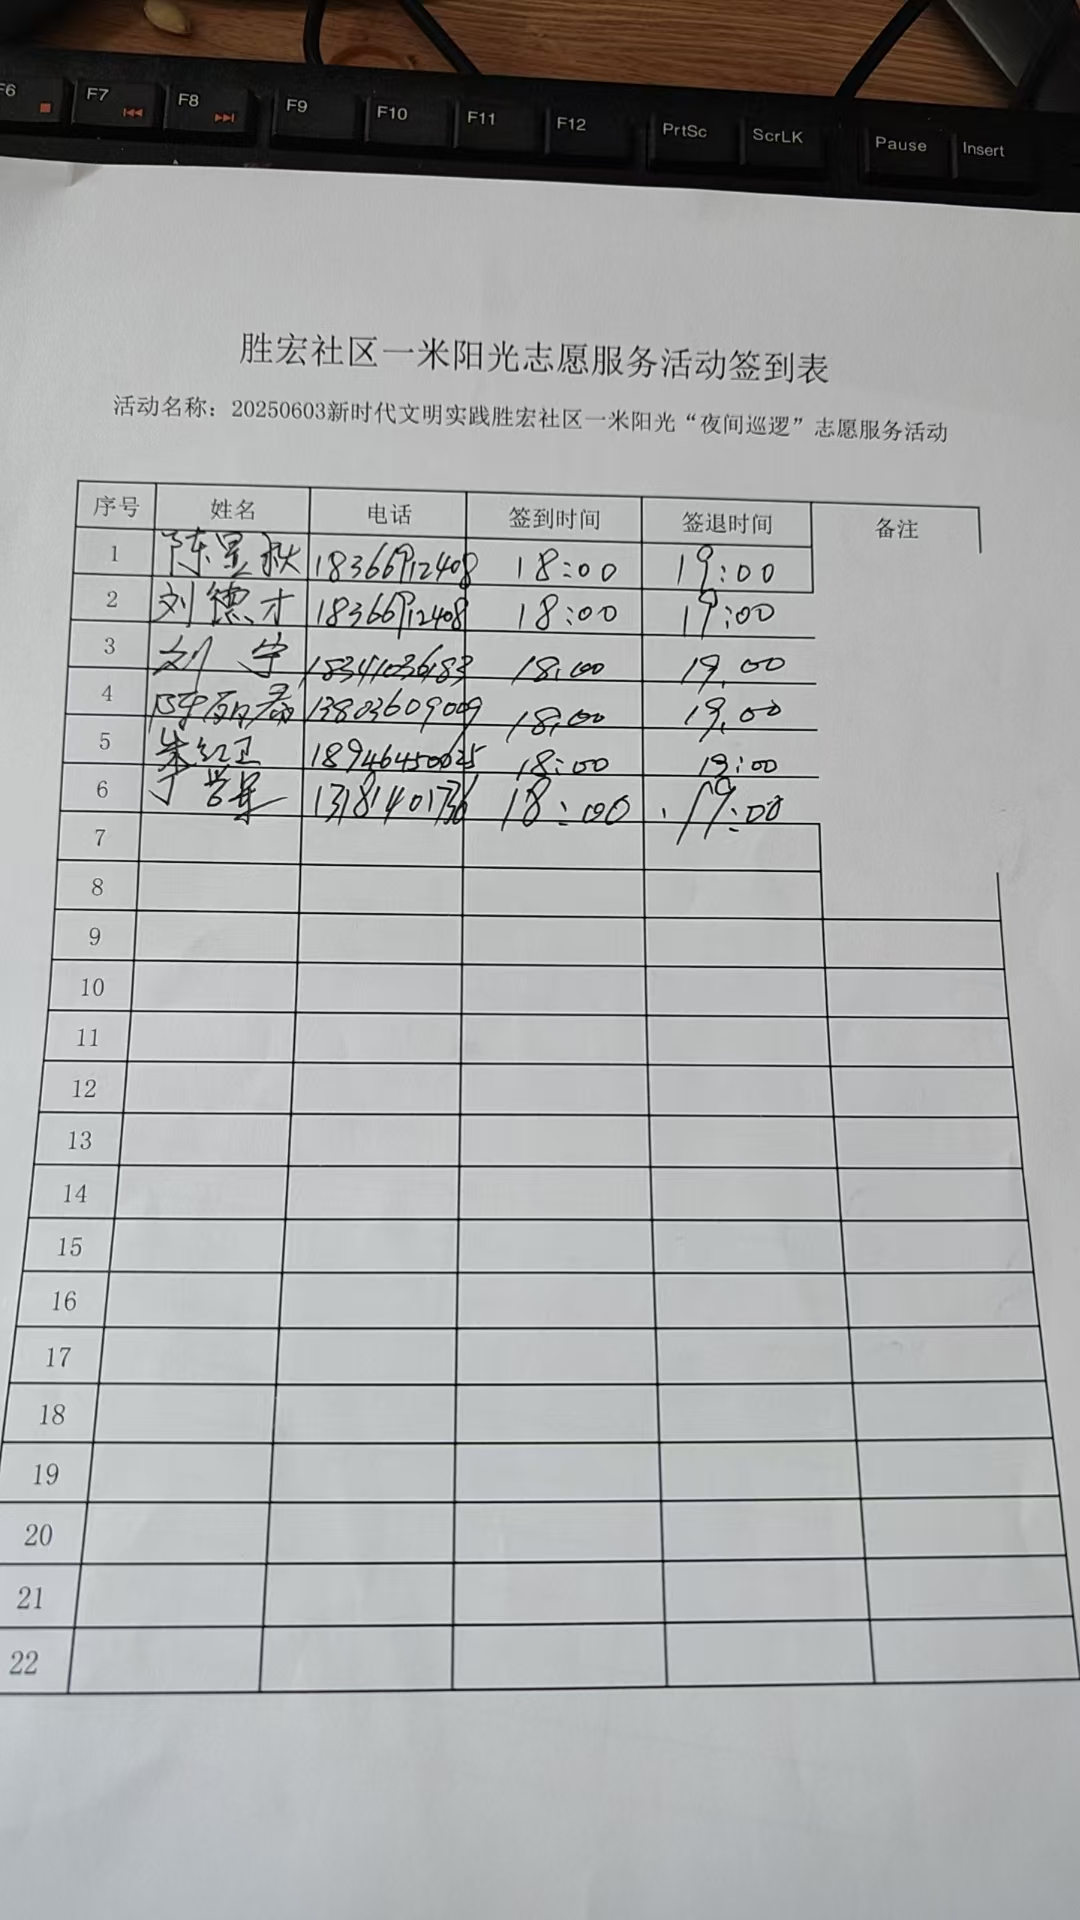 F6 F7 F8 F9 F10 F11 F12 PrtSc ScrLK Pause Insert
胜宏社区一米阳光志愿服务活动签到表
活动名称：20250603新时代文明实践胜宏社区一米阳光“夜间巡逻”志愿服务活动
序号 姓名 电话 签到时间 签退时间 备注
1 陈显秋 18366912408 18:00 19:00
2 刘德才 18366912408 18:00 19:00
3 刘宁 18:00 19:00
4 13803609009 18:00 19:00
5 朱红卫 18946450025 18:00 19:00
6 于 13181401736 18:00 19:00
7
8
9
10
11
12
13
14
15
16
17
18
19
20
21
22